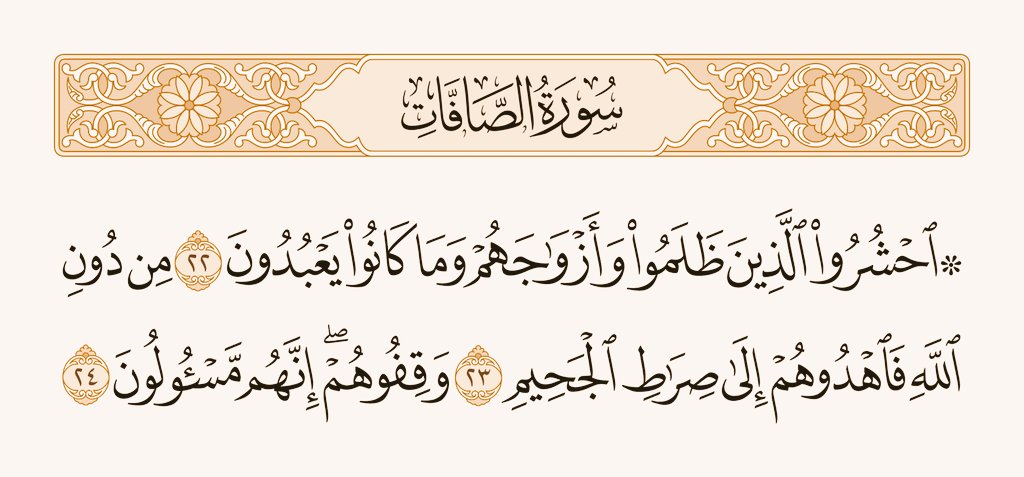 سُورَةُ الصَّافَّاتِ
۞ ٱحْشُرُوا۟ ٱلَّذِينَ ظَلَمُوا۟ وَأَزْوَٰجَهُمْ وَمَا كَانُوا۟ يَعْبُدُونَ ٢٢ مِن دُونِ
ٱللَّهِ فَٱهْدُوهُمْ إِلَىٰ صِرَٰطِ ٱلْجَحِيمِ ٢٣ وَقِفُوهُمْ ۖ إِنَّهُم مَّسْـُٔولُونَ ٢٤